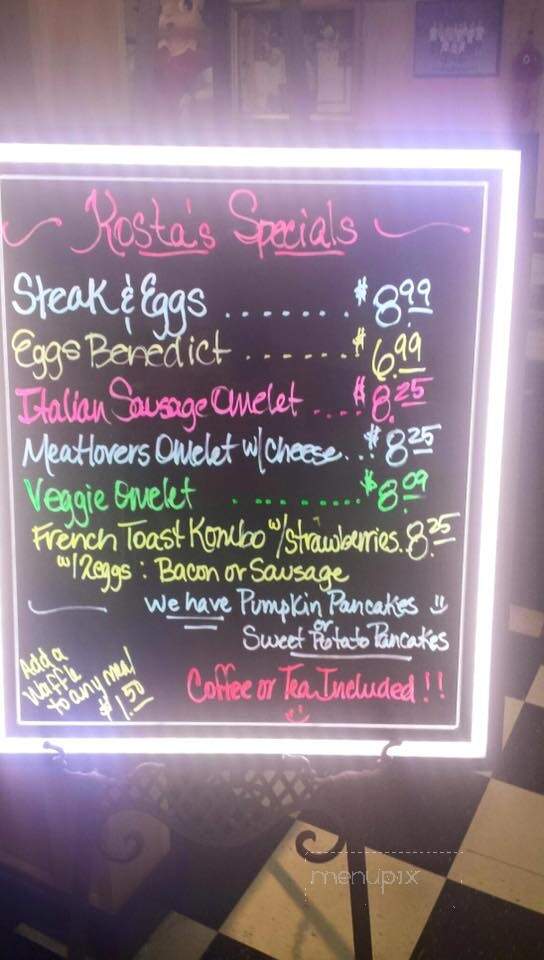 Kosta's Specials
Steak & Eggs ....... $8.99
Eggs Benedict ...... $6.99
Italian Sausage Omelet .... $8.25
Meatlovers Omelet w/cheese... $8.25
Veggie Omelet .......... $8.09
French Toast Kombo w/strawberries. 8.25
w/2eggs : Bacon or Sausage
We have Pumpkin Pancakes
or
Sweet Potato Pancakes
Add a
Waffle
to any meal
$1.50
Coffee or Tea Included !!
menupix